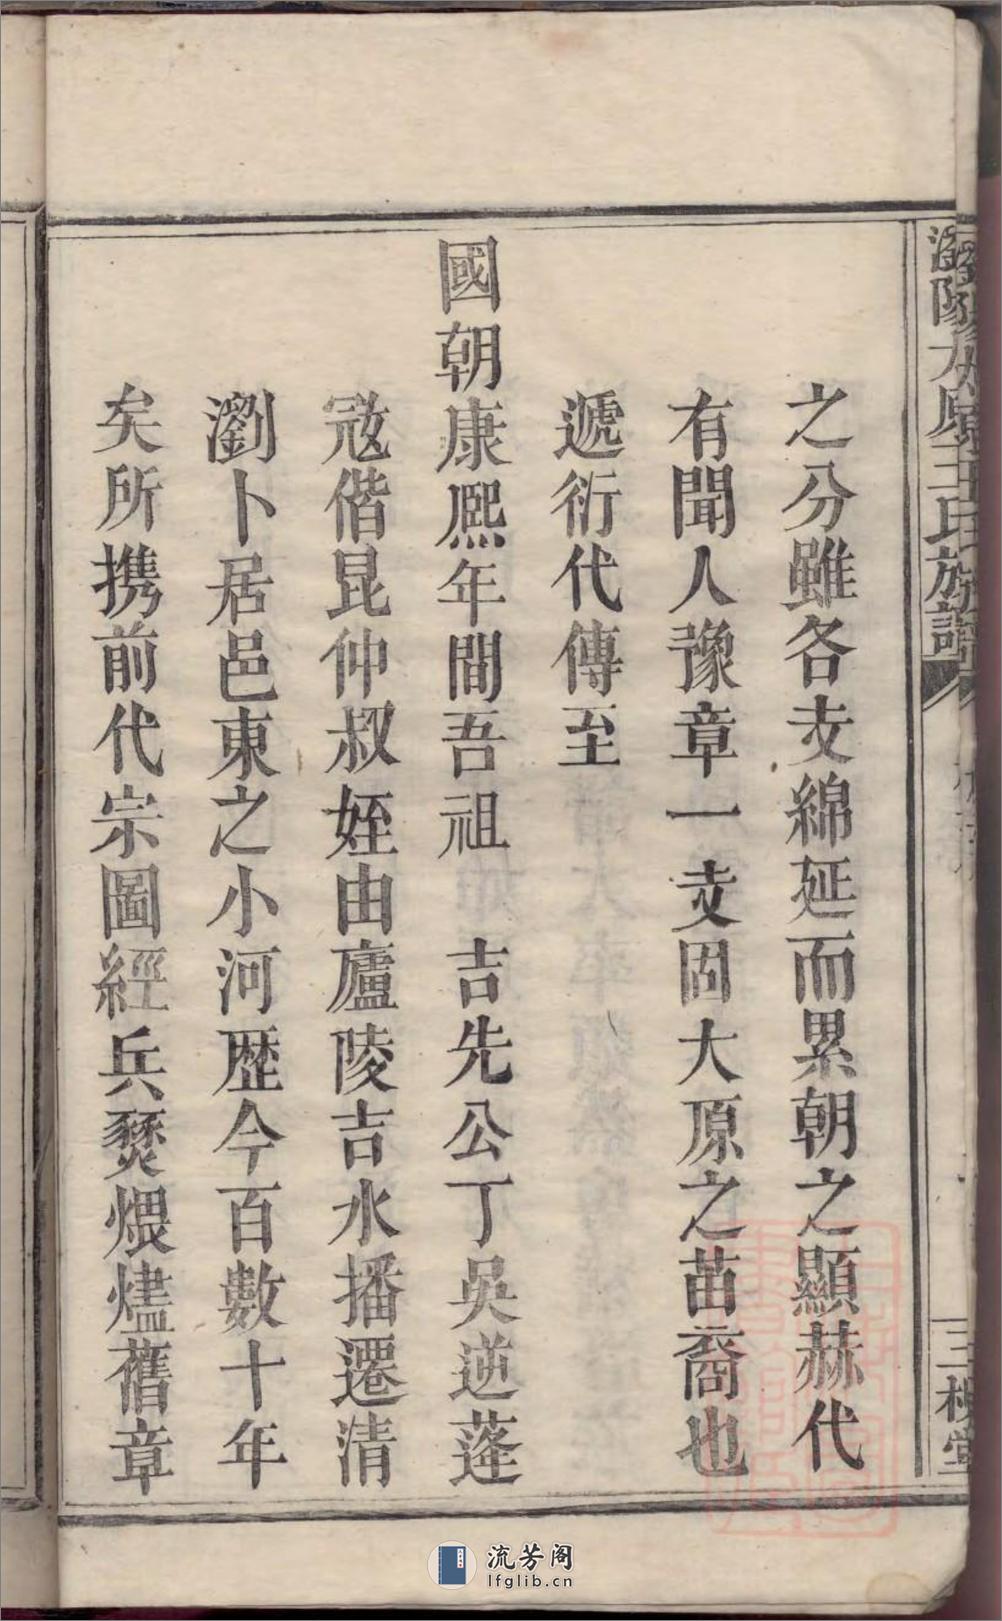 之分雖各支綿延而累朝之顯赫代
有聞人豫章一支固大原之苗裔也
遞衍代傳至
國朝康熙年間吾祖　吉先公丁吳逆蓬
宼偕昆仲叔姪由廬陵吉水播遷清
劉卜居邑東之小河歷今百數十年
矣所携前代宗圖經兵燹煨燼舊章
瀏陽太原王氏族譜
三槐堂
流芳阁
lfglib.cn